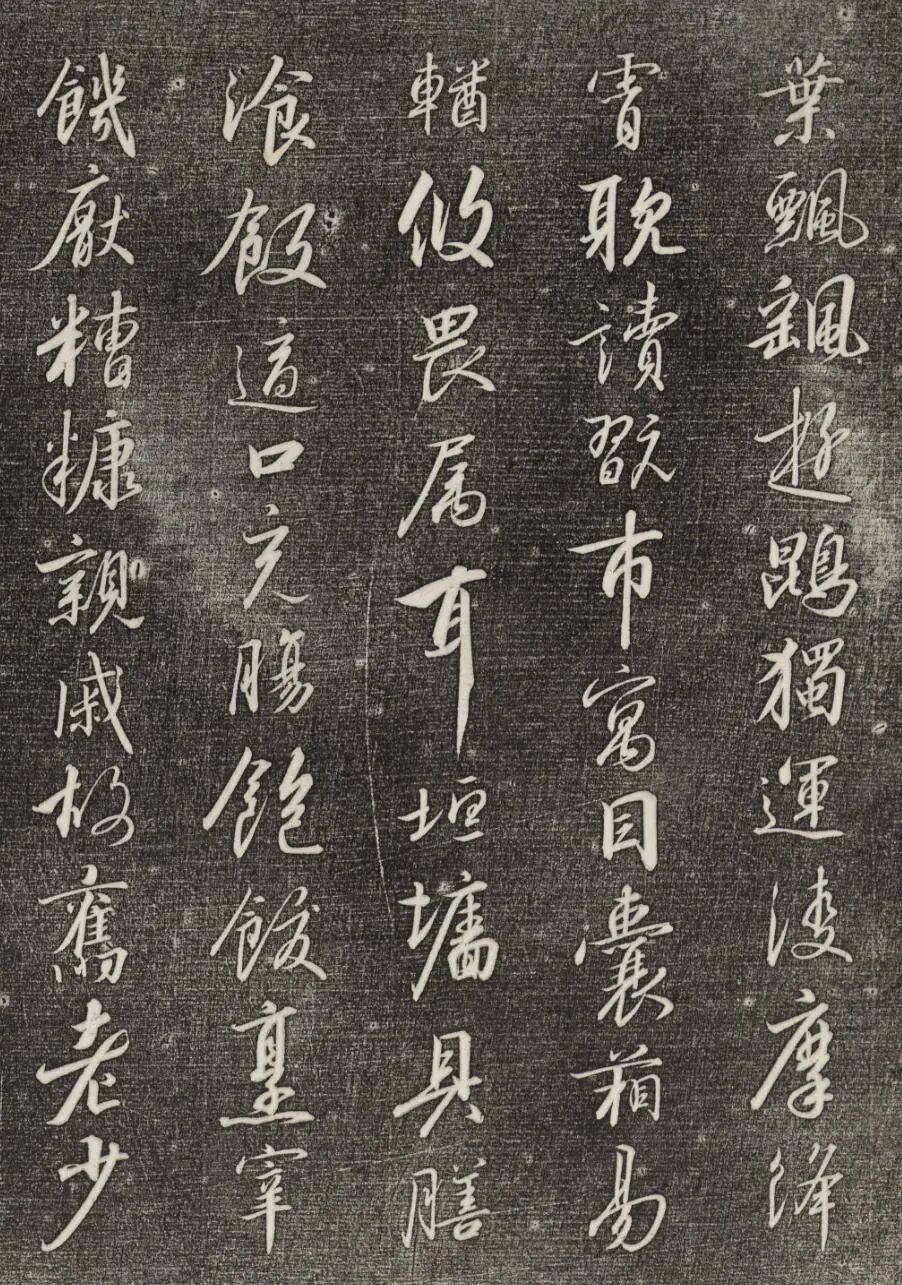 葉飄颻遊鵾獨運淩摩絳
霄耽讀翫市寓目囊箱易
輶攸畏属耳垣墻具膳
飡飯適口充腸飽飫烹宰
飢厭糟糠親戚故舊老少